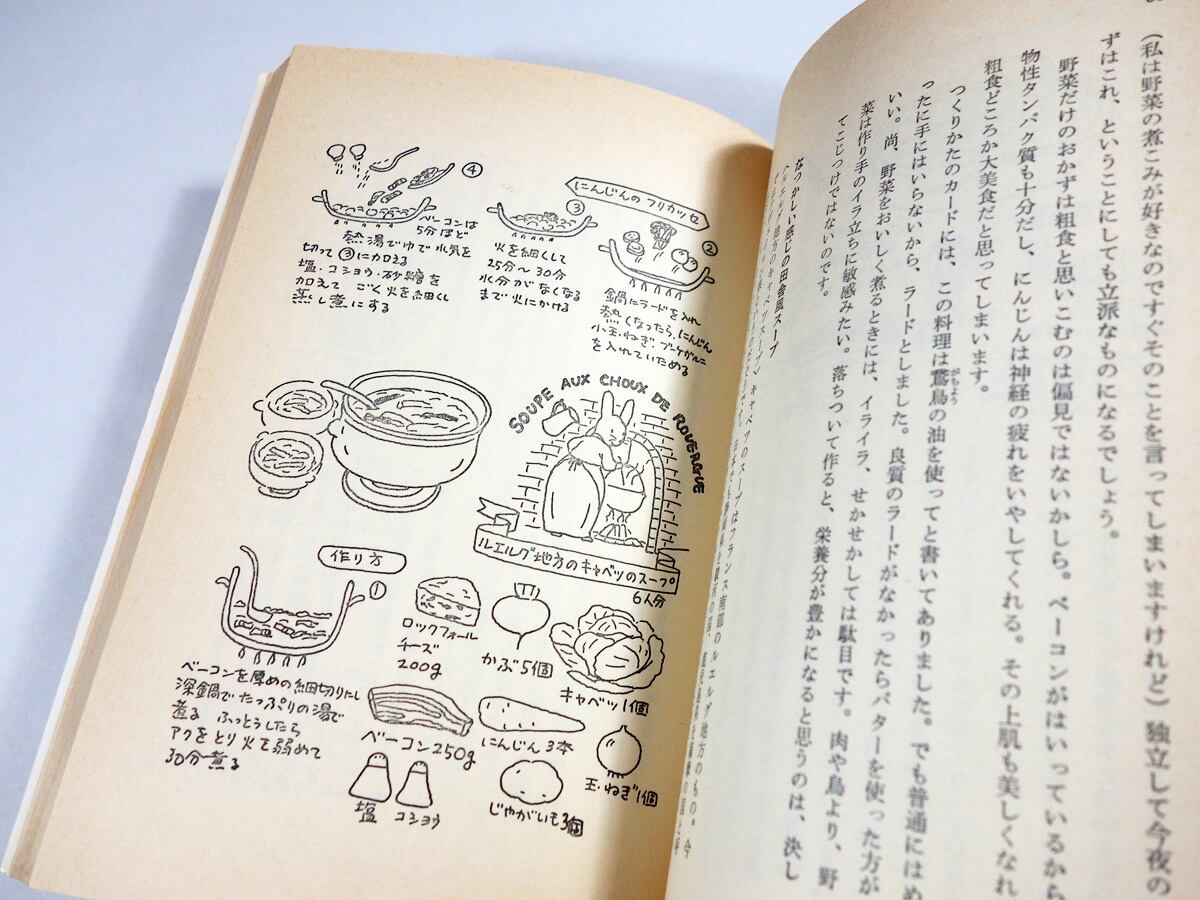 (私は野菜の煮こみが好きなのですぐそのことを言ってしまいますけれど)独立して今夜の
ずはこれ、ということにしても立派なものになるでしょう。
野菜だけのおかずは粗食と思いこむのは偏見ではないかしら。ベーコンがはいっているから
物性タンパク質も十分だし、にんじんは神経の疲れをいやしてくれる。その上肌も美しくなれ
粗食どころか大美食だと思ってしまいます。
つくりかたのカードには、この料理は鵞鳥の油を使ってと書いてありました。でも普通にはめ
がちょう
ったに手にはいらないから、ラードとしました。良質のラードがなかったらバターを使った方が
いい。尚、野菜をおいしく煮るときには、イライラ、せかせかしては駄目です。肉や鳥より、野
菜は作り手のイラ立ちに敏感みたい。落ちついて作ると、栄養分が豊かになると思うのは、決し
てこじつけではないのです。
なつかしい感じの田舎風スープ
キャベツのスープはフランス南部のルエルグ地方のもの。今
にんじんのフリカッセ
②
鍋にラードを入れ
熱くなったら、にんじん
小玉ねぎ、ブーケガルニ
を入れていためる
③
火を細くして
25分〜30分
水分がなくなる
まで火にかける
④
ベーコンは
5分ほど
熱湯でゆで水気を
切って③に加える
塩・コショウ・砂糖を
加えて ごく火を細くし
蒸し煮にする
SOUPE AUX CHOUX DE ROUERGUE
ルエルグ地方のキャベツのスープ
6人分
キャベツ1個
かぶ5個
ロックフォール
チーズ
200g
玉ねぎ1個
にんじん3本
ベーコン250g
じゃがいも3個
コショウ
塩
作り方
①
ベーコンを厚めの細切りにし
深鍋でたっぷりの湯で
煮る ふっとうしたら
アクをとり火を弱めて
30分煮る